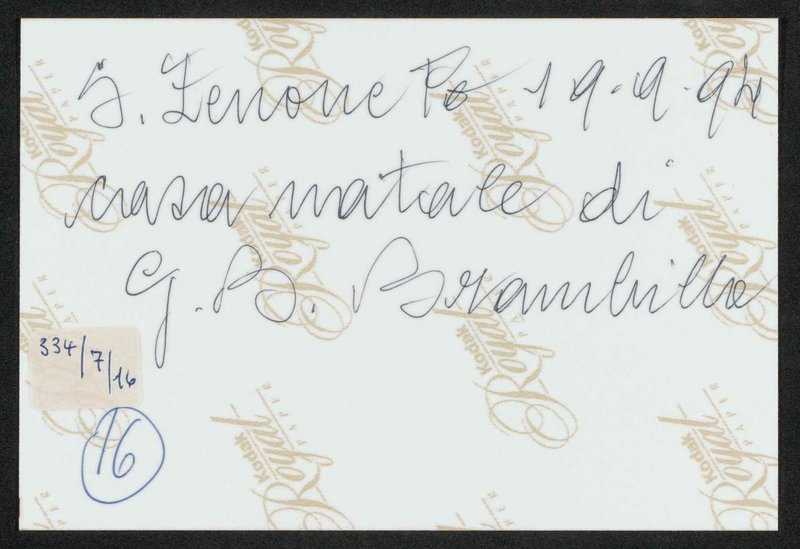 S. Zenone Po 19.9.94
casa natale di
G. B. Brambilla
334/7/16
16
Kodak
Royal
PAPER